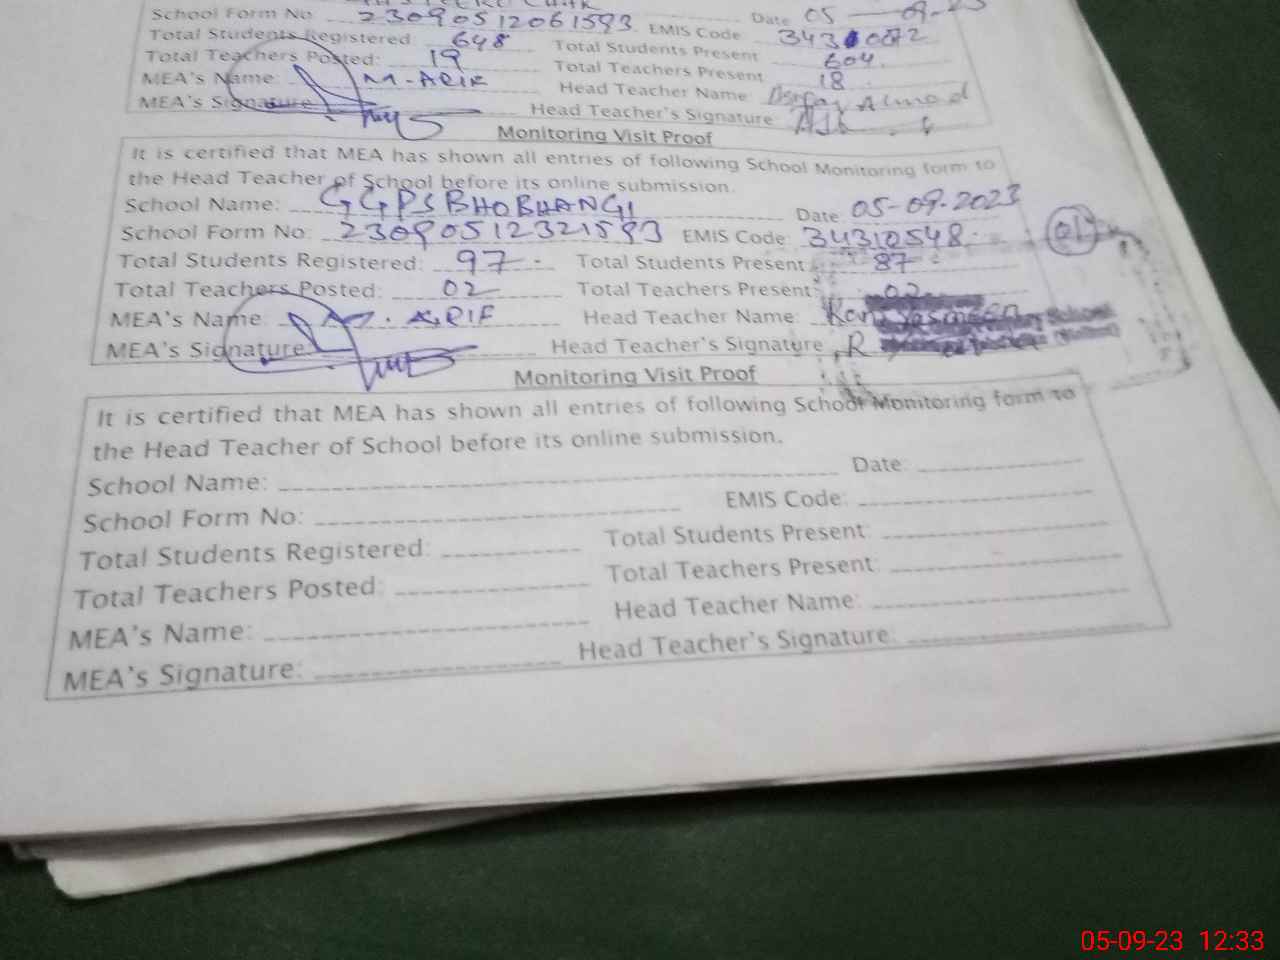 School Form No. 23090512061593 EMIS Code 34310072 Date 05-09-23
Total Students Registered 648 Total Students Present 604
Total Teachers Posted: 19 Total Teachers Present 18
MEA's Name: M-ARIF Head Teacher Name Ahmad
MEA's Signature Head Teacher's Signature
Monitoring Visit Proof
It is certified that MEA has shown all entries of following School Monitoring form to
the Head Teacher of School before its online submission.
School Name: GGPS BHOBHANGI Date 05-09-2023
School Form No: 23090512321593 EMIS Code: 34310548 01
Total Students Registered: 97 Total Students Present 87
Total Teachers Posted: 02 Total Teachers Present: 02
MEA's Name M. ARIF Head Teacher Name: Yasmeen
MEA's Signature Head Teacher's Signature R
Monitoring Visit Proof
It is certified that MEA has shown all entries of following School Monitoring form to
the Head Teacher of School before its online submission.
School Name: Date:
School Form No: EMIS Code:
Total Students Registered: Total Students Present:
Total Teachers Posted: Total Teachers Present:
MEA's Name: Head Teacher Name:
MEA's Signature: Head Teacher's Signature:
05-09-23 12:33